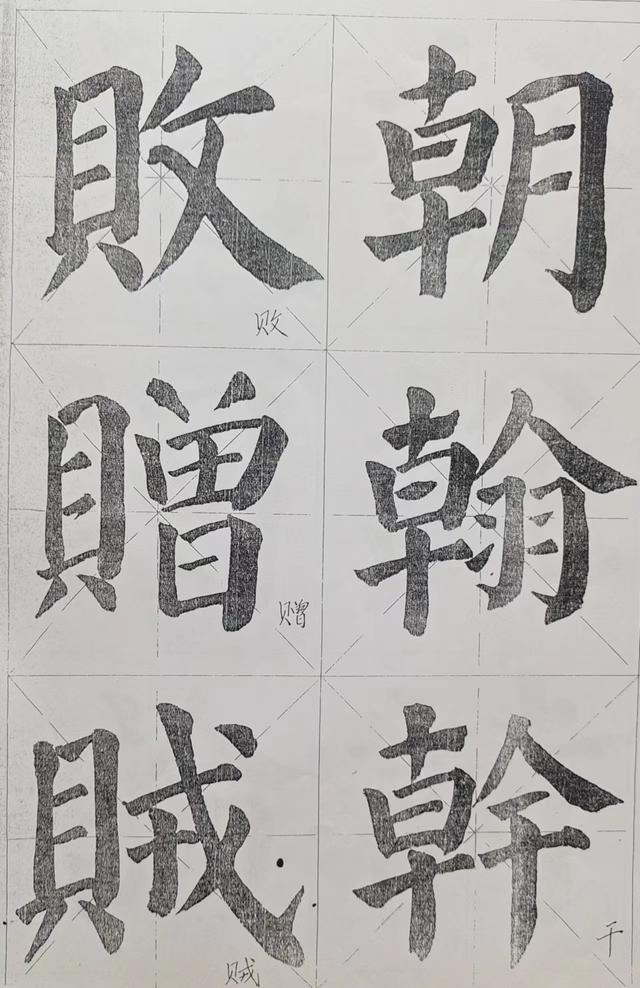 敗 朝
败
贈 翰
赠
賊 幹
贼 干